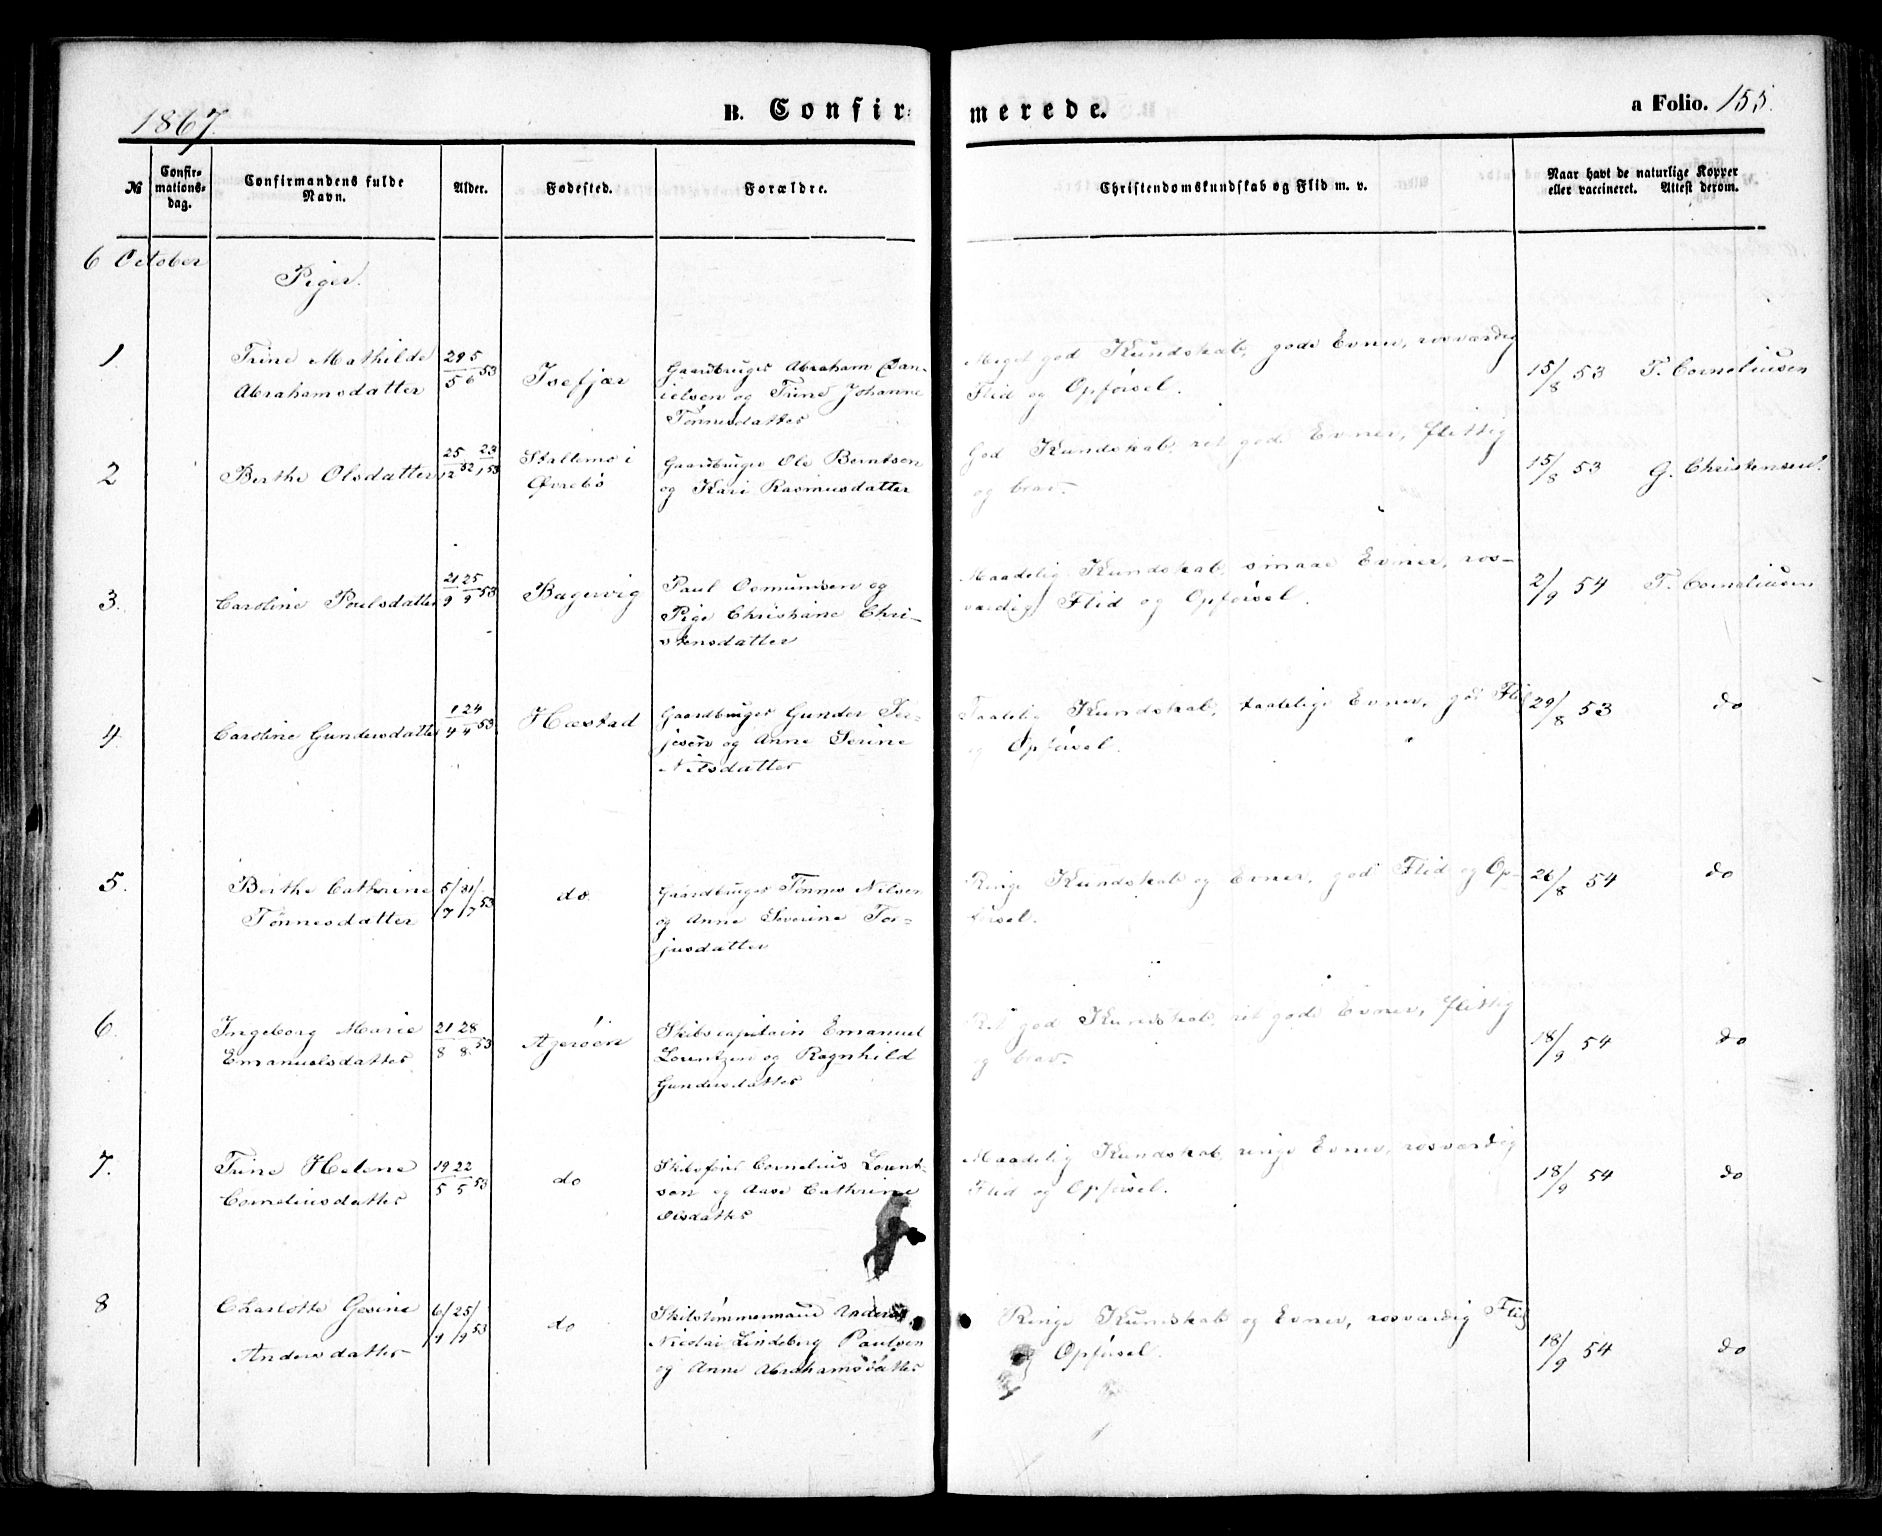 1867.
B. Confirmerede.
a Folio. 155.
№
Confirmationsdag.
Confirmandens fulde Navn.
Alder.
Fødested.
Forældre.
Christendomskundskab og Flid m. v.
Naar havt de naturlige Kopper eller vaccineret. Attest derom.
6 October
Piger.
1
Trine Mathilde
Abrahamsdatter
29/5 5/6 53
Isefjær
Gaardbruger Abraham Dan-
ielsen og Trine Johanne
Tønnesdatter
Meget god Kundskab, gode Evner, rosværdig
Flid og Opførsel.
15/8 53
T. Corneliusen
2
Berthe Olsdatter
25/12 52 23/1 53
Stallemo i
Øvrebø
Gaardbruger Ole Berntsen
og Kari Rasmusdatter
God Kundskab, ret gode Evner, flittig
og brav.
15/8 53
G. Christensen
3.
Caroline Poulsdatter
21/9 25/9 53
Bagervig
Paul Osmundsen og
Pige Christiane Chri-
stensdatter
Maadelig Kundskab, smaae Evner, ros-
værdig Flid og Opførsel.
2/9 54
T. Corneliusen
4
Caroline Gundersdatter
1/4 24/4 53
Hæstad
Gaardbruger Gunder Ter-
jesen og Anne Serine
Nilsdatter
Taalelig Kundskab, taalelige Evner, god Flid
og Opførsel.
29/8 53
do
5.
Berthe Cathrine
Tønnesdatter
5/7 31/7 53
do
Gaardbruger Tønnes Nilsen
og Anne Severine Ter-
jusdatter
Ringe Kundskab og Evner, god Flid og Op-
førsel.
26/8 54
do
6.
Ingeborg Marie
Emanuelsdatter
21/8 28/8 53
Ajerøen
Skibscapitain Emanuel
Lorentzen og Ragnhild
Gundersdatter
Ret god Kundskab, ret gode Evner, flittig
og brav.
18/9 54
do
7.
Trine Helene
Corneliusdatter
19/5 22/5 53
do
Skibsfører Cornelius Lorent-
sen og Aase Cathrine
Olsdatter
Maadelig Kundskab, ringe Evner, rosværdig
Flid og Opførsel.
18/9 54
do
8
Charlotte Gesine
Andersdatter
6/9 25/9 53
do
Skibstømmermand Anders
Nicolai Lindeberg Paulsen
og Anne Abrahamsdatter
Ringe Kundskab og Evner, rosværdig Flid
og Opførsel.
18/9 54
do